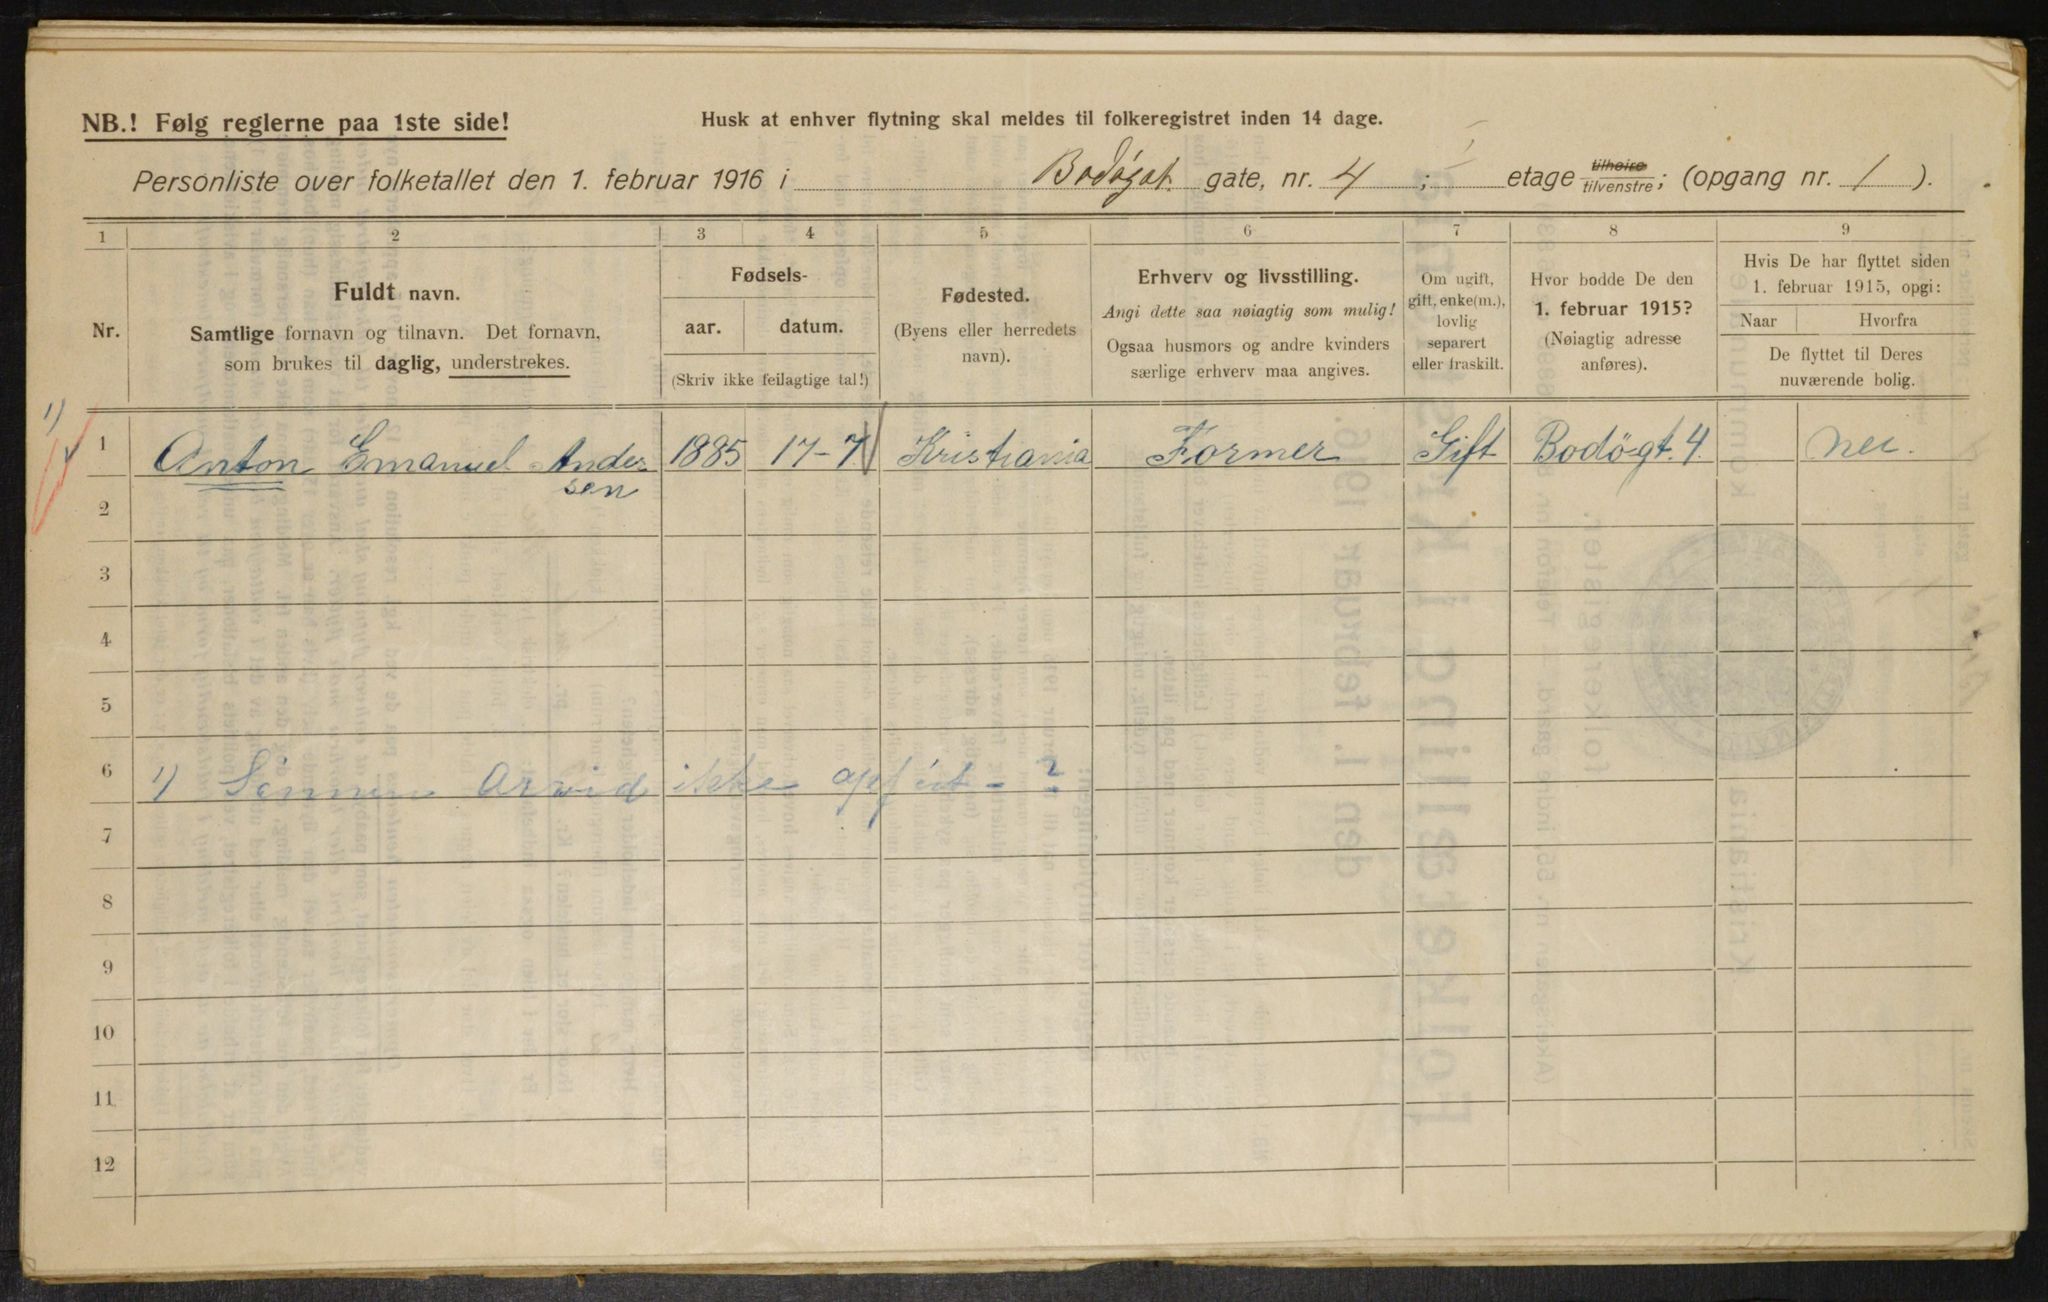 NB.! Følg reglerne paa 1ste side!
Husk at enhver flytning skal meldes til folkeregistret inden 14 dage.
Personliste over folketallet den 1. februar 1916 i Bodøgat. gate, nr. 4 ; etage tilhøire tilvenstre; (opgang nr. 1 ).
1 2 3 4 5 6 7 8 9
Nr.
Fuldt navn.
Samtlige fornavn og tilnavn. Det fornavn,
som brukes til daglig, understrekes.
Fødsels-
aar. datum.
(Skriv ikke feilagtige tal!)
Fødested.
(Byens eller herredets
navn).
Erhverv og livsstilling.
Angi dette saa nøiagtig som mulig!
Ogsaa husmors og andre kvinders
særlige erhverv maa angives.
Om ugift,
gift, enke(m.),
lovlig
separert
eller fraskilt.
Hvor bodde De den
1. februar 1915?
(Nøiagtig adresse
anføres).
Hvis De har flyttet siden
1. februar 1915, opgi:
Naar Hvorfra
De flyttet til Deres
nuværende bolig.
1)
1 Anton Emanuel Ander 1885 17-7 Kristiania Former Gift Bodøgt. 4. nei.
sen
2
3
4
5
6 1) Sønnen Arvid ikke opført - ?
7
8
9
10
11
12